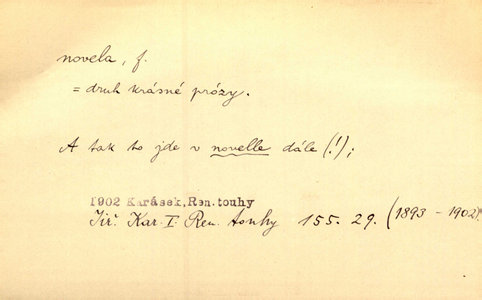 novela, f.
= druh krásné prózy.
A tak to jde v novelle dále (!);
1902 Karásek, Ren. touhy
Jiř. Kar. I. Ren. touhy 155. 29. (1893 - 1902)